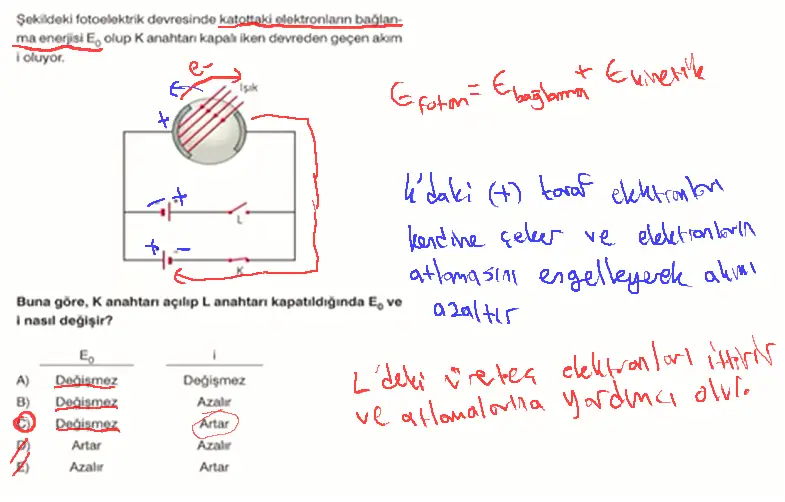 Şekildeki fotoelektrik devresinde katottaki elektronların bağlan-
ma enerjisi E₀ olup K anahtarı kapalı iken devreden geçen akım
i oluyor.
e-
Işık
+
- +
L
+ -
K
E foton = E bağlanma + E kinetik
K'daki (+) taraf elektronları
kendine çeker ve elektronların
atlamasını engelleyerek akımı
azaltır
Buna göre, K anahtarı açılıp L anahtarı kapatıldığında E₀ ve
i nasıl değişir?
E₀ i
A) Değişmez Değişmez
B) Değişmez Azalır
C) Değişmez Artar
D) Artar Azalır
E) Azalır Artar
L'deki üreteç elektronları ittirir
ve atlamalarına yardımcı olur.